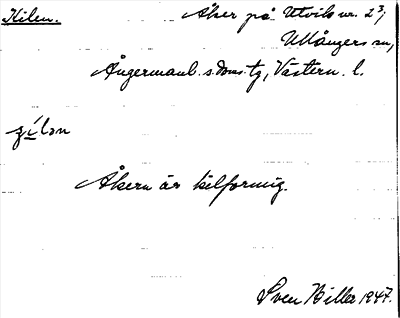 Kilen. Åker på Utvik nr. 2³,
Ullångers sn,
Ångermanl. s. doms. tg, Västern. l.
Åkern är kilformig.
Sven Hiller 1947.